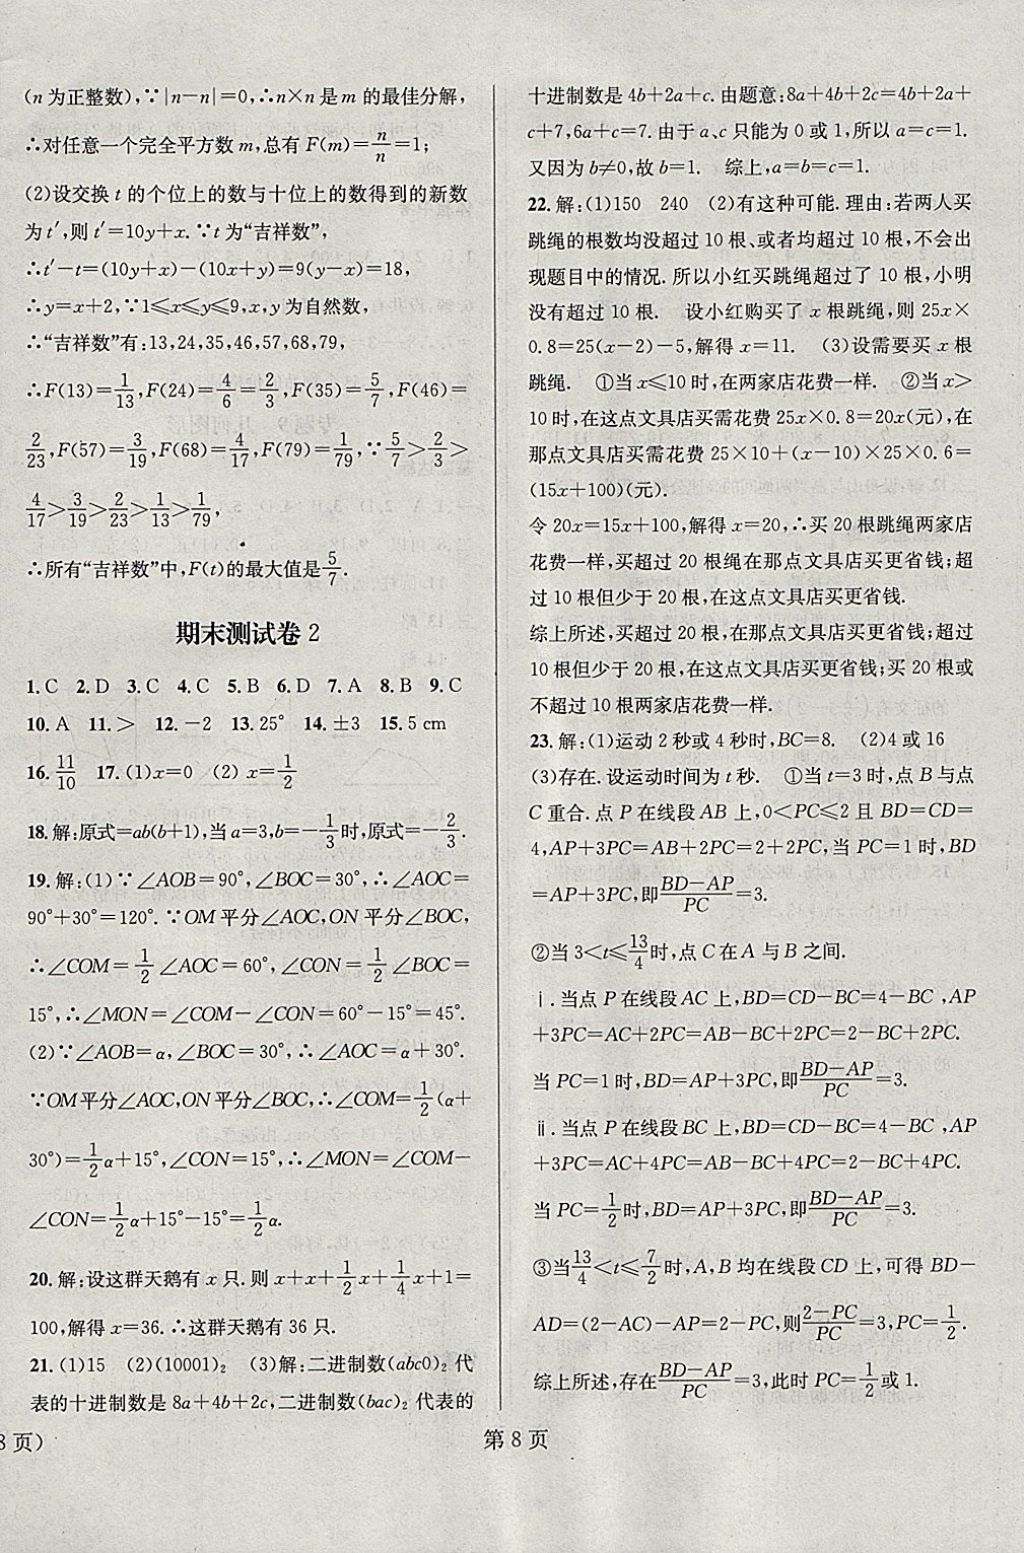 (n为正整数),∵|n−n|=0,∴n×n是m的最佳分解,
∴对任意一个完全平方数m,总有F(m)=n/n=1;
(2)设交换t的个位上的数与十位上的数得到的新数
为t′,则t′=10y+x.∵t为“吉祥数”,
∴t′−t=(10y+x)−(10x+y)=9(y−x)=18,
∴y=x+2,∵1⩽x⩽y⩽9,x,y为自然数,
∴“吉祥数”有:13,24,35,46,57,68,79,
∴F(13)=1/13,F(24)=4/6=2/3,F(35)=5/7,F(46)=
2/23,F(57)=3/19,F(68)=4/17,F(79)=1/79,∵5/7>2/3>
4/17>3/19>2/23>1/13>1/79,
∴所有“吉祥数”中,F(t)的最大值是5/7.
期末测试卷2
1.C 2.D 3.C 4.C 5.B 6.D 7.A 8.B 9.C
10.A 11.> 12.−2 13.25° 14.±3 15.5 cm
16.11/10 17.(1)x=0 (2)x=1/2
18.解:原式=ab(b+1),当a=3,b=−1/3时,原式=−2/3.
19.解:(1)∵∠AOB=90°,∠BOC=30°,∴∠AOC=
90°+30°=120°.∵OM平分∠AOC,ON平分∠BOC,
∴∠COM=1/2∠AOC=60°,∠CON=1/2∠BOC=
15°,∴∠MON=∠COM−∠CON=60°−15°=45°.
(2)∵∠AOB=α,∠BOC=30°,∴∠AOC=α+30°.
∵OM平分∠AOC,ON平分∠BOC,∴∠COM=1/2(α+
30°)=1/2α+15°,∠CON=15°,∴∠MON=∠COM−
∠CON=1/2α+15°−15°=1/2α.
20.解:设这群天鹅有x只.则x+x+1/2x+1/4x+1=
100,解得x=36.∴这群天鹅有36只.
21.(1)15 (2)(10001)₂ (3)解:二进制数(abc0)₂代
表的十进制数是8a+4b+2c,二进制数(bac)₂代表的
十进制数是4b+2a+c.由题意:8a+4b+2c=4b+2a+
c+7,6a+c=7.由于a、c只能为0或1,所以a=c=1.
又因为b≠0,故b=1. 综上,a=b=c=1.
22.解:(1)150 240 (2)有这种可能.理由:若两人买
跳绳的根数均没超过10根、或者均超过10根,不会出
现题目中的情况.所以小红买跳绳超过了10根,小明
没有超过10根. 设小红购买了x根跳绳,则25x×
0.8=25(x−2)−5,解得x=11. (3)设需要买x根
跳绳. ①当x⩽10时,在两家店花费一样. ②当x>
10时,在这点文具店买需花费25x×0.8=20x(元),在
那点文具店买需花费25×10+(x−10)×25×0.6=
(15x+100)(元).
令20x=15x+100,解得x=20,∴买20根跳绳两家店
花费一样,买超过20根绳在那点文具店买更省钱;超
过10根但少于20根,在这点文具店买更省钱.
综上所述,买超过20根,在那点文具店买更省钱;超过
10根但少于20根,在这点文具店买更省钱;买20根或
不超过10根两家店花费一样.
23.解:(1)运动2秒或4秒时,BC=8. (2)4或16
(3)存在.设运动时间为t秒. ①当t=3时,点B与点
C重合.点P在线段AB上,0<PC⩽2且BD=CD=
4,AP+3PC=AB+2PC=2+2PC,当PC=1时,BD
=AP+3PC,即(BD−AP)/PC=3.
②当3<t⩽13/4时,点C在A与B之间.
ⅰ.当点P在线段AC上,BD=CD−BC=4−BC,AP
+3PC=AC+2PC=AB−BC+2PC=2−BC+2PC.
当PC=1时,BD=AP+3PC,即(BD−AP)/PC=3.
ⅱ.当点P在线段BC上,BD=CD−BC=4−BC,AP
+3PC=AC+4PC=AB−BC+4PC=2−BC+4PC.
当PC=1/2时,BD=AP+3PC,即(BD−AP)/PC=3.
③当13/4<t⩽7/2时,A,B均在线段CD上,可得BD−
AD=(2−AC)−AP=2−PC,则(2−PC)/PC=3,PC=1/2.
综上所述,存在(BD−AP)/PC=3,此时PC=1/2或1.
8页)
第8页